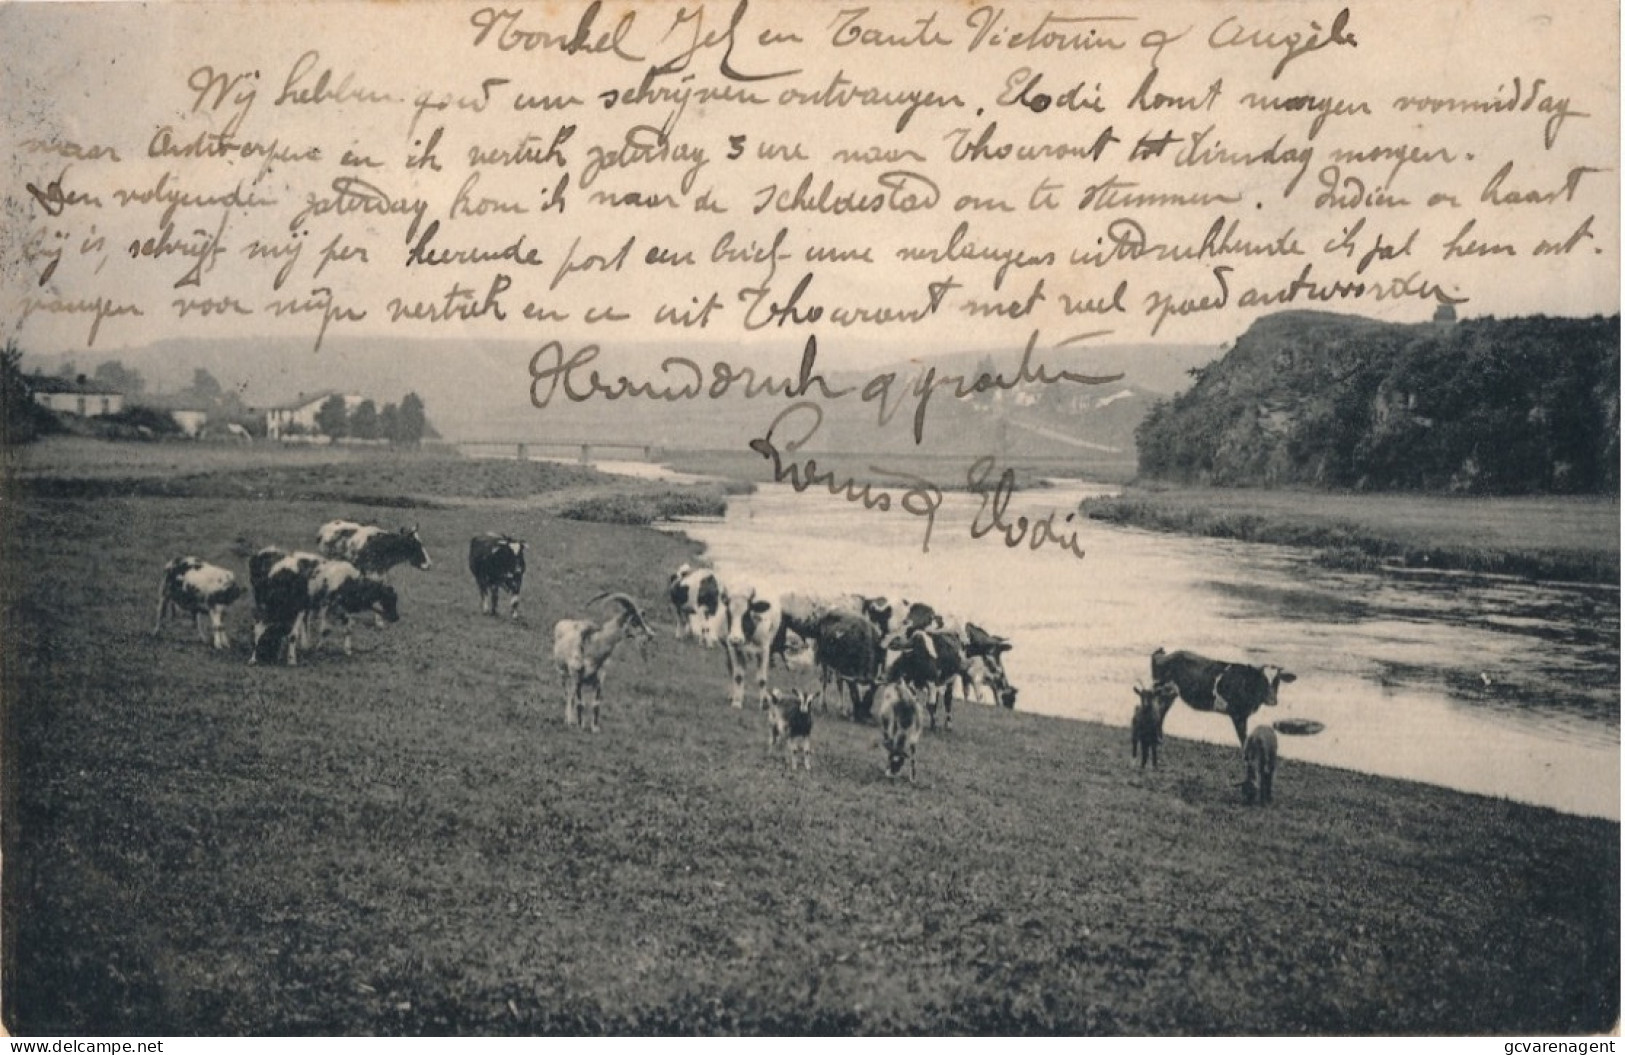 Nonkel Jef en Tante Victorin & Angèle
Wij hebben goed uw schrijven ontvangen. Elodie komt morgen voormiddag
naar Antwerpen en ik vertrek zaterdag 3 ure naar Thourout tot dinsdag morgen.
Den volgenden zaterdag kom ik naar de Scheldestad om te stemmen. Indien er haast
bij is, schrijf mij per keerende post een brief uwe verlangens uitdrukkende ik zal hem ont-
vangen voor mijn vertrek en u uit Thourout met veel spoed antwoorden.
Handdruk & groeten
Louis & Elodie
www.delcampe.net
gcvarenagent